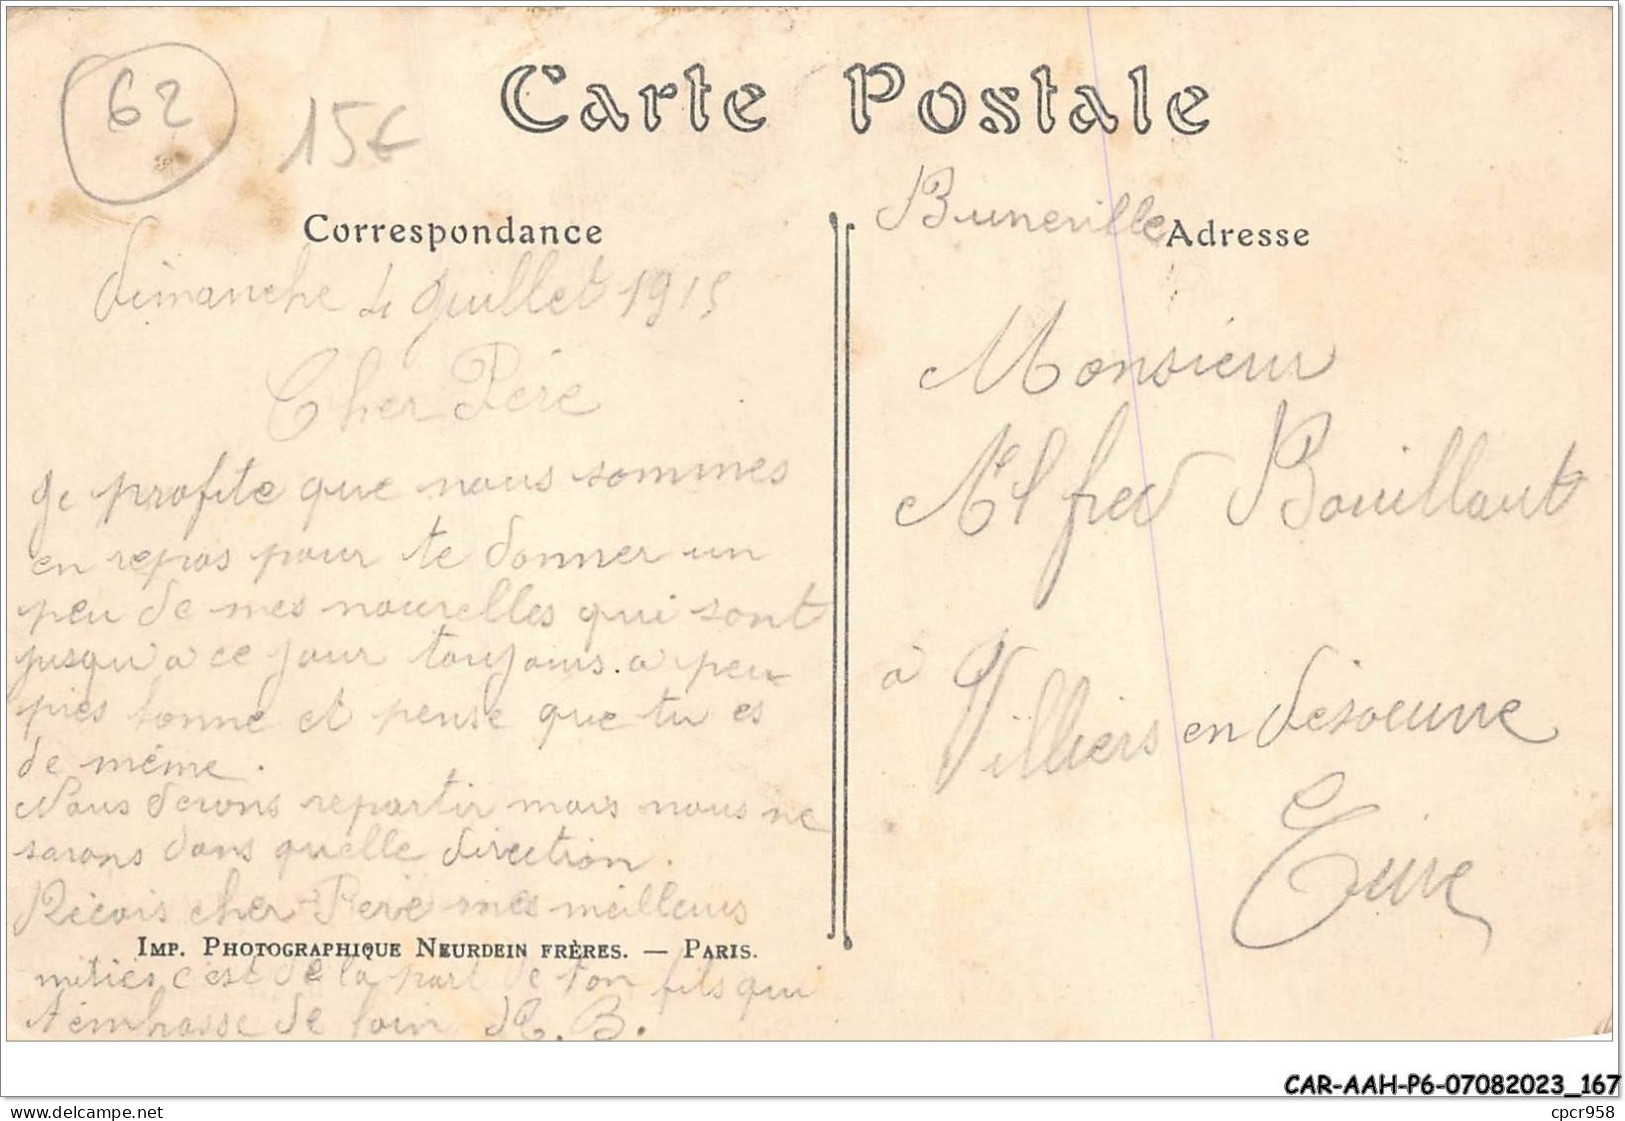 Carte Postale
62
15€
Correspondance
Buneville Adresse
dimanche 4 Juillet 1915
Cher Père
Je profite que nous sommes
en repos pour te donner un
peu de mes nouvelles qui sont
jusqu'a ce jour toujours a peu
près bonne et pense que tu es
de même.
Nous devons repartir mais nous ne
savons dans quelle direction.
Récois cher Père mes meilleurs
mitiés c'est de la part de ton fils qui
t'embrasse de loin B.
Imp. Photographique Neurdein frères. — Paris.
Monsieur
Alfred Bouillaut
à Villiers en désoeuvre
Eure
CAR-AAH-P6-07082023_167
Delcampe.net
cpcr958